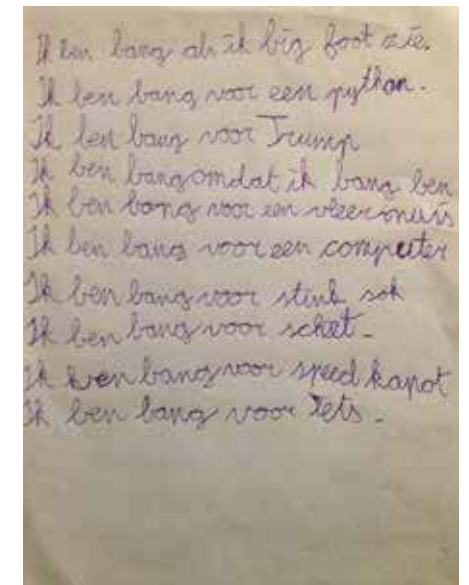 Ik ben bang als ik big foot zie.
Ik ben bang voor een python.
Ik ben bang voor Trump
Ik ben bang omdat ik bang ben
Ik ben bang voor een vleermuis
Ik ben bang voor een computer
Ik ben bang voor stink sok
Ik ben bang voor schet.
Ik ben bang voor speed kapot
Ik ben bang voor Iets.